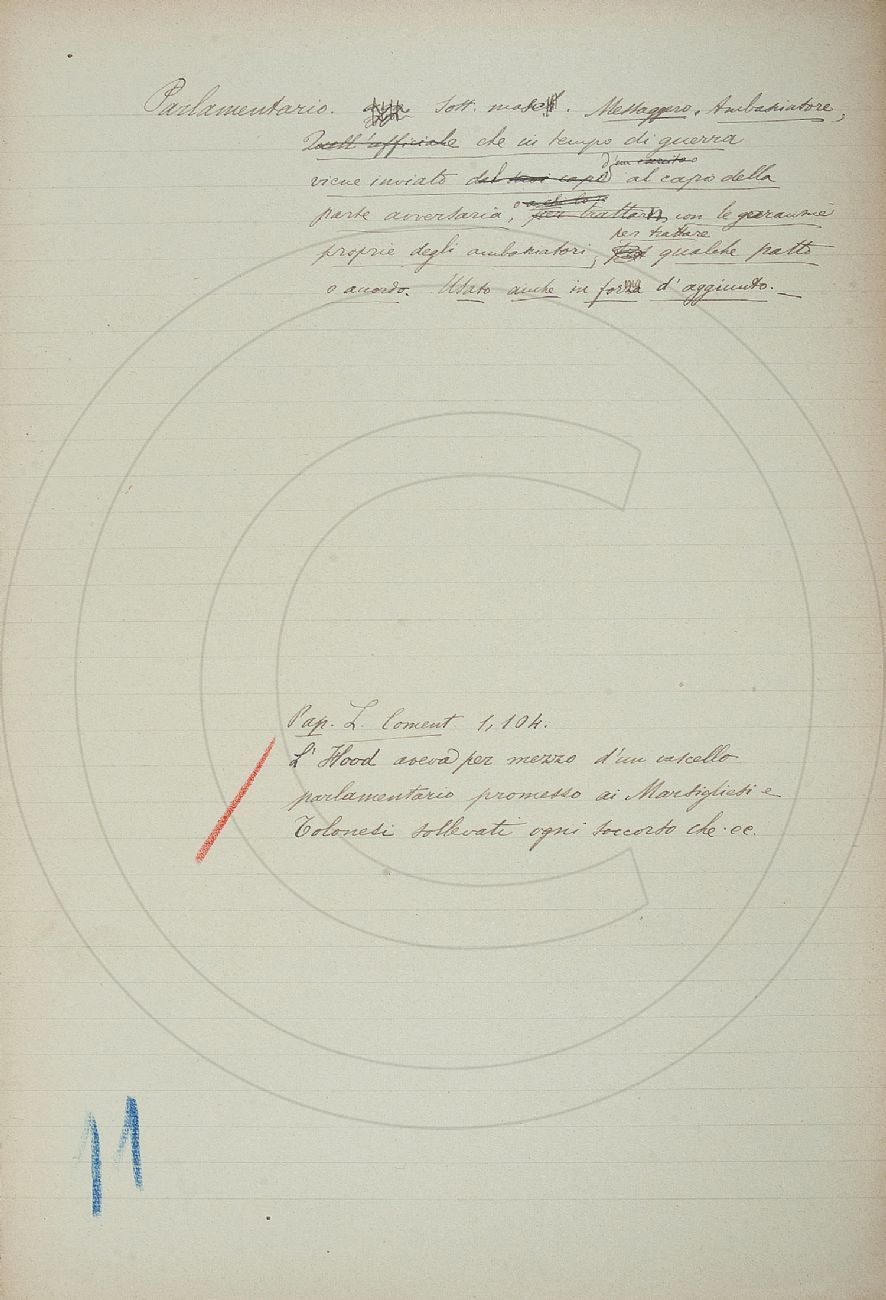 Parlamentario. Sost. masc. Messaggero, Ambasciatore,
Quell'officiale che in tempo di guerra
d'un esercito
viene inviato dal capo al capo della
o a chi lo
parte avversaria, per trattare con le guarantie
per trattare
proprie degli ambasciatori, qualche patto
o accordo. Usato anche in forza d'aggiunto.
Pap. L. Coment 1, 104.
L'Hood aveva per mezzo d'un vascello
parlamentario promesso ai Marsigliesi e
Tolonesi sollevati ogni soccorso che. ec.
11